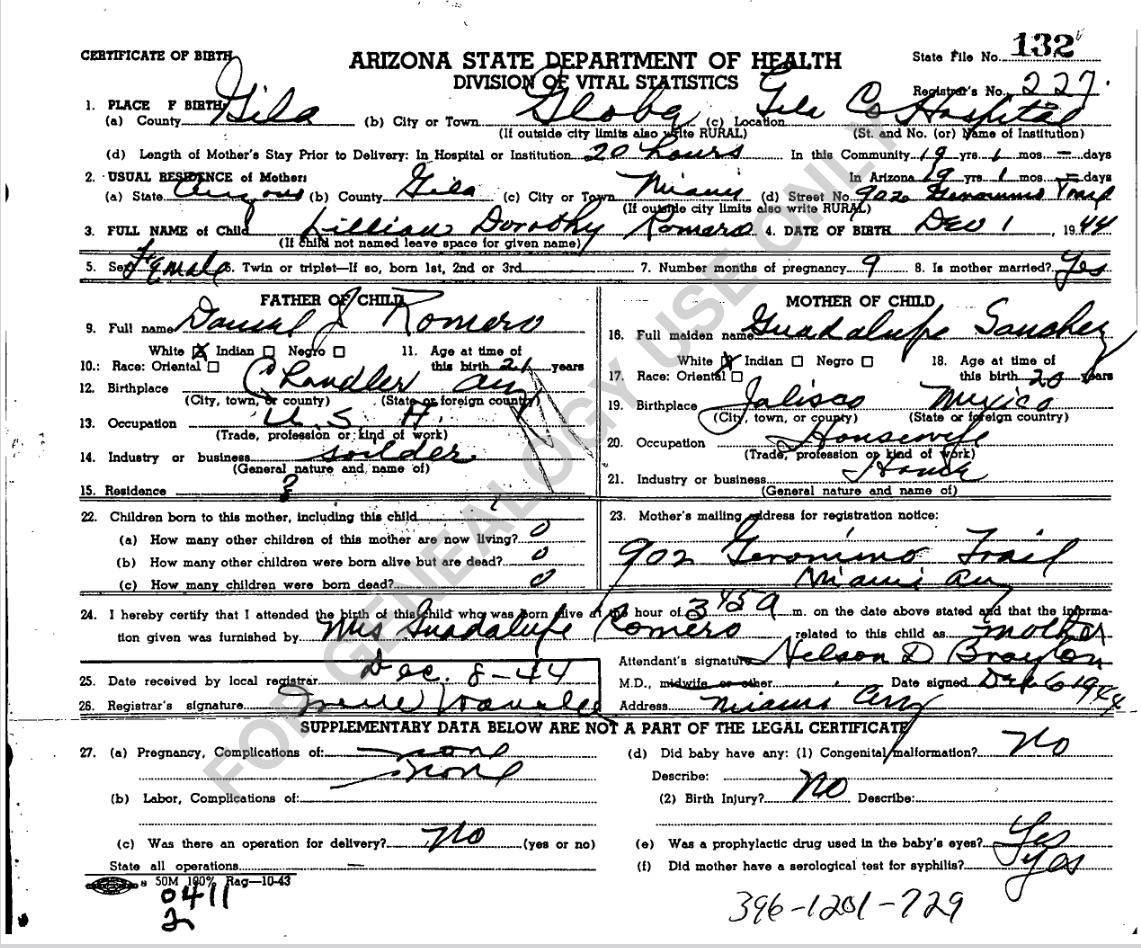 CERTIFICATE OF BIRTH
ARIZONA STATE DEPARTMENT OF HEALTH
DIVISION OF VITAL STATISTICS
State File No. 132
Registrar's No. 227.
1. PLACE F BIRTH:
(a) County Gila (b) City or Town Globe (c) Location Gila Co Hospital
(If outside city limits also write RURAL) (St. and No. (or) Name of Institution)
(d) Length of Mother's Stay Prior to Delivery: In Hospital or Institution 20 hours In this Community 19 yrs. 1 mos - days
2. USUAL RESIDENCE of Mother: In Arizona 19 yrs. 1 mos. - days
(a) State Arizona (b) County Gila (c) City or Town Miami (d) Street No. 902 Geronimo Trail
(If outside city limits also write RURAL)
3. FULL NAME of Child Lillian Dorothy Romero 4. DATE OF BIRTH Dec 1, 1944
(If child not named leave space for given name)
5. Sex Female 6. Twin or triplet—If so, born 1st, 2nd or 3rd 7. Number months of pregnancy 9 8. Is mother married? Yes
FATHER OF CHILD
9. Full name Daniel J Romero
White X Indian Negro 11. Age at time of
10.: Race: Oriental this birth 21 years
12. Birthplace Chandler
(City, town, or county) (State or foreign country)
13. Occupation U.S. A.
(Trade, profession or kind of work)
14. Industry or business soilder
(General nature and name of)
15. Residence ?
MOTHER OF CHILD
16. Full maiden name Guadalupe Sanchez
White X Indian Negro 18. Age at time of
17. Race: Oriental this birth 20 years
19. Birthplace Jalisco Mexico
(City, town, or county) (State or foreign country)
20. Occupation Housewife
(Trade, profession or kind of work)
21. Industry or business
(General nature and name of)
22. Children born to this mother, including this child
(a) How many other children of this mother are now living? 0
(b) How many other children were born alive but are dead? 0
(c) How many children were born dead? 0
23. Mother's mailing address for registration notice:
902 Geronimo Trail
Miami
24. I hereby certify that I attended the birth of this child who was born alive at the hour of 3 45 a m. on the date above stated and that the informa-
tion given was furnished by Mrs Guadalupe Romero related to this child as mother
Attendant's signature Nelson D Brayton
25. Date received by local registrar Dec. 8-44
M.D., midwife or other Date signed Dec 6 1944
26. Registrar's signature
Address Miami
SUPPLEMENTARY DATA BELOW ARE NOT A PART OF THE LEGAL CERTIFICATE
27. (a) Pregnancy, Complications of: none
none
(b) Labor, Complications of:
(c) Was there an operation for delivery? No (yes or no)
State all operations —
(d) Did baby have any: (1) Congenital malformation? No
Describe:
(2) Birth Injury? No Describe:
(e) Was a prophylactic drug used in the baby's eyes? Yes
(f) Did mother have a serological test for syphilis? yes
50M 190% Rag—10-43
0411
2
396-1201-729
FOR GENEALOGY USE ONLY